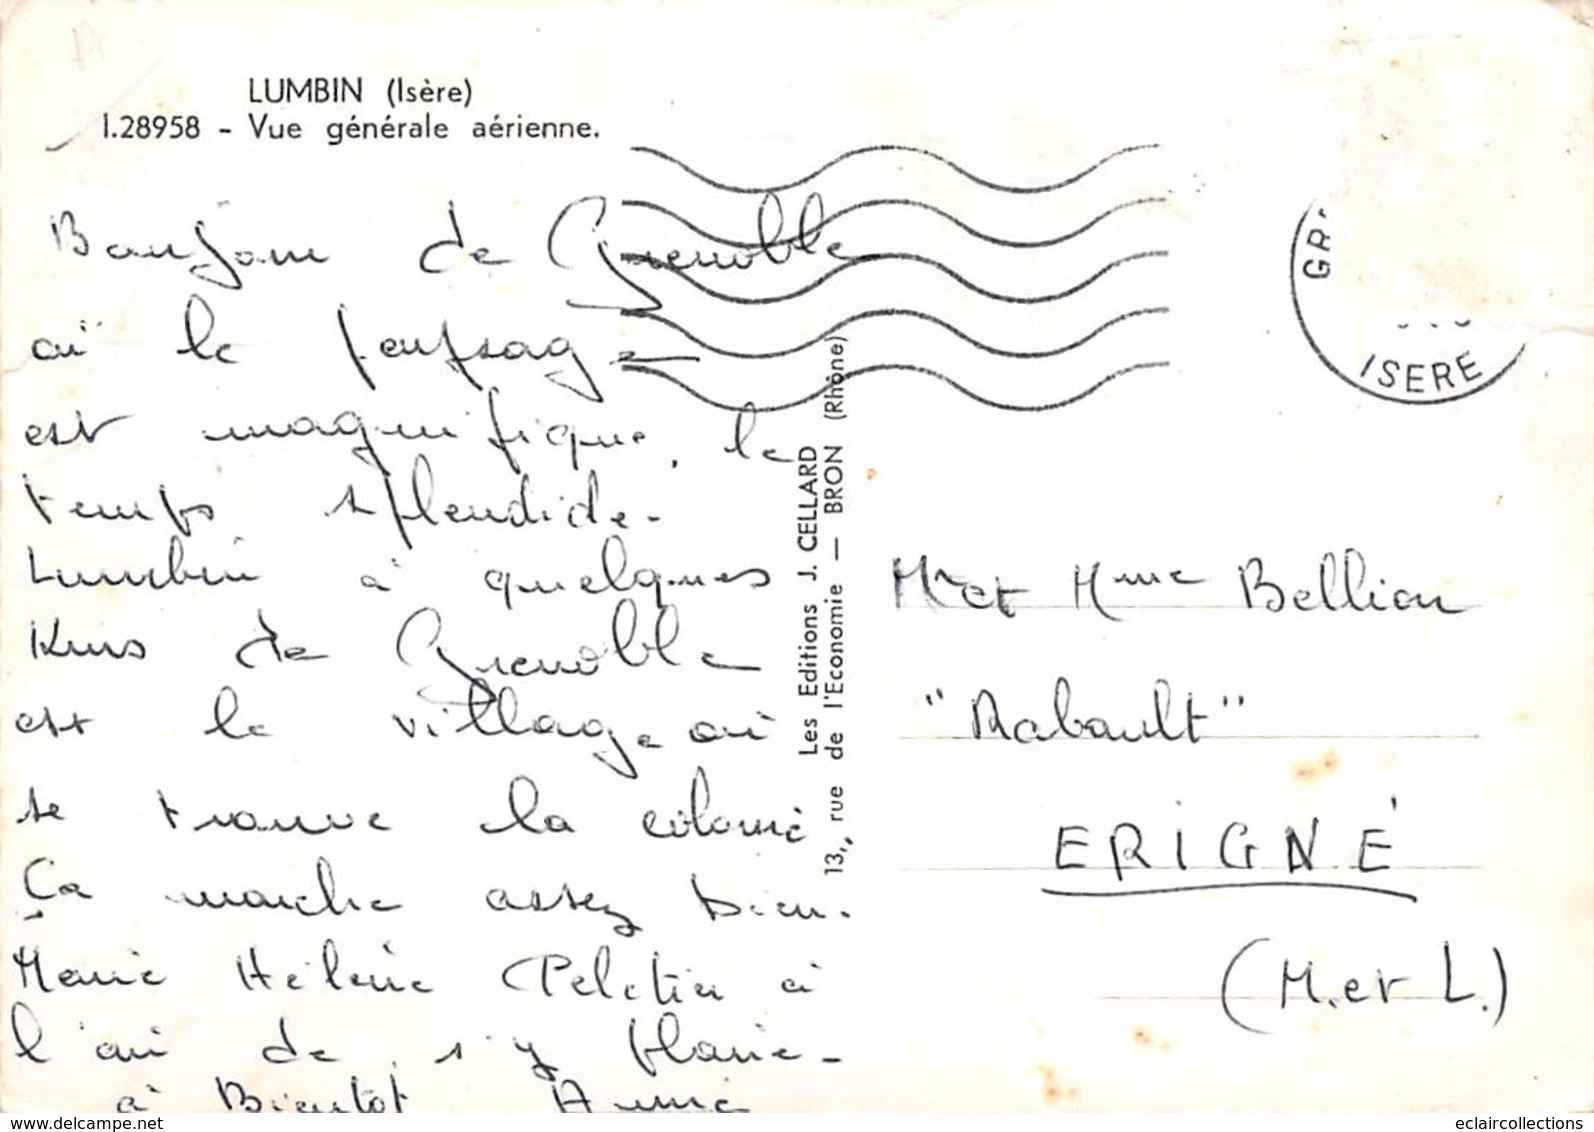 LUMBIN (Isère)
I.28958 - Vue générale aérienne.
Bonjour de Grenoble
où le paysage
est magnifique, le
temps splendide.
Lumbin à quelques
Kms de Grenoble
est le village où
se trouve la colonie
Ça marche assez bien.
Marie Hélène Peletier a
l'air de s'y plaire.
à Bientôt Annie
Les Editions J. CELLARD
13, rue de l'Economie — BRON (Rhône)
GR
ISERE
Mr et Mme Bellion
"Rabault"
ERIGNÉ
(M. et L.)
delcampe.net
eclaircollections